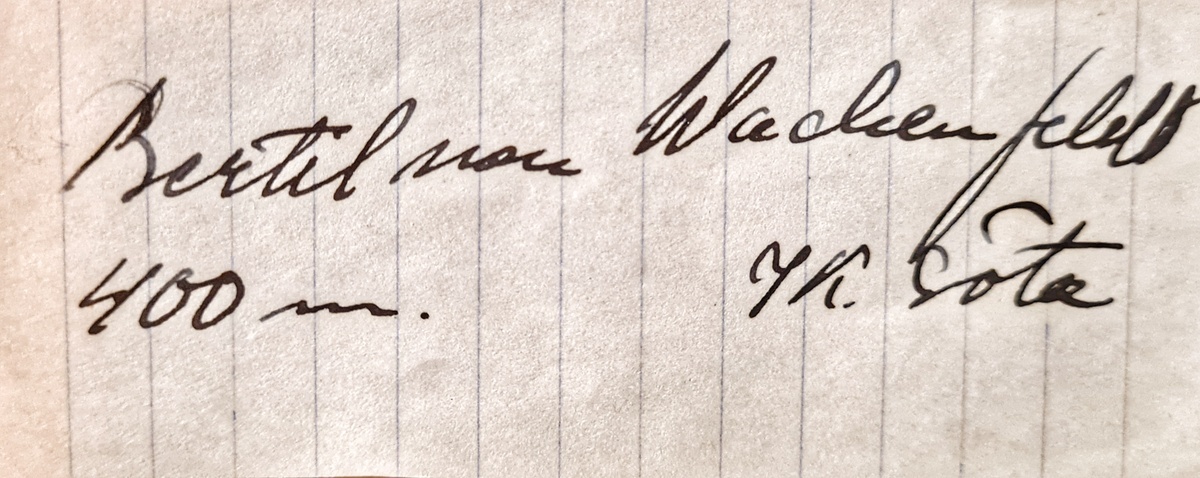 Bertil von Wachenfeldt
400 m. IK. Göta